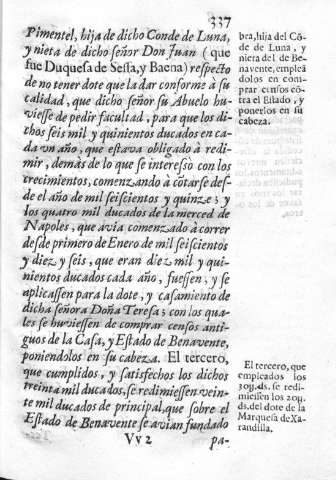 337
Pimentel, hija de dicho Conde de Luna,
y nieta de dicho señor Don Juan (que
fue Duquesa de Sessa, y Baena) respecto
de no tener dote que la dar conforme à su
calidad, que dicho señor su Abuelo hu-
viesse de pedir facultad, para que los di-
chos seis mil y quinientos ducados en ca-
da vn año, que estava obligado à redi-
mir, demás de lo que se interesso con los
crecimientos, comenzando à cõtarse des-
de el año de mil seiscientos y quinze; y
los quatro mil ducados de la merced de
Napoles, que avia comenzado à correr
desde primero de Enero de mil seiscientos
y diez y seis, que eran diez mil y qui-
nientos ducados cada año, fuessen, y se
aplicassen para la dote, y casamiento de
dicha señora Doña Teresa; con los qua-
les se huviessen de comprar censos anti-
guos de la Casa, y Estado de Benavente,
poniendolos en su cabeza. El tercero,
que cumplidos, y satisfechos los dichos
treinta mil ducados, se redimiessen vein-
te mil ducados de principal, que sobre el
Estado de Benavente se avian fundado
Vv 2
pa-
bra, hija del Cõ-
de de Luna, y
nieta del de Be-
navente, empleã
dolos en com-
prar censos cõ-
tra el Estado, y
ponerlos en su
cabeza.
El tercero, que
empleados los
30y.ds. se redi-
miessen los 20y.
ds. del dote de la
Marquesa de Xa-
randilla.